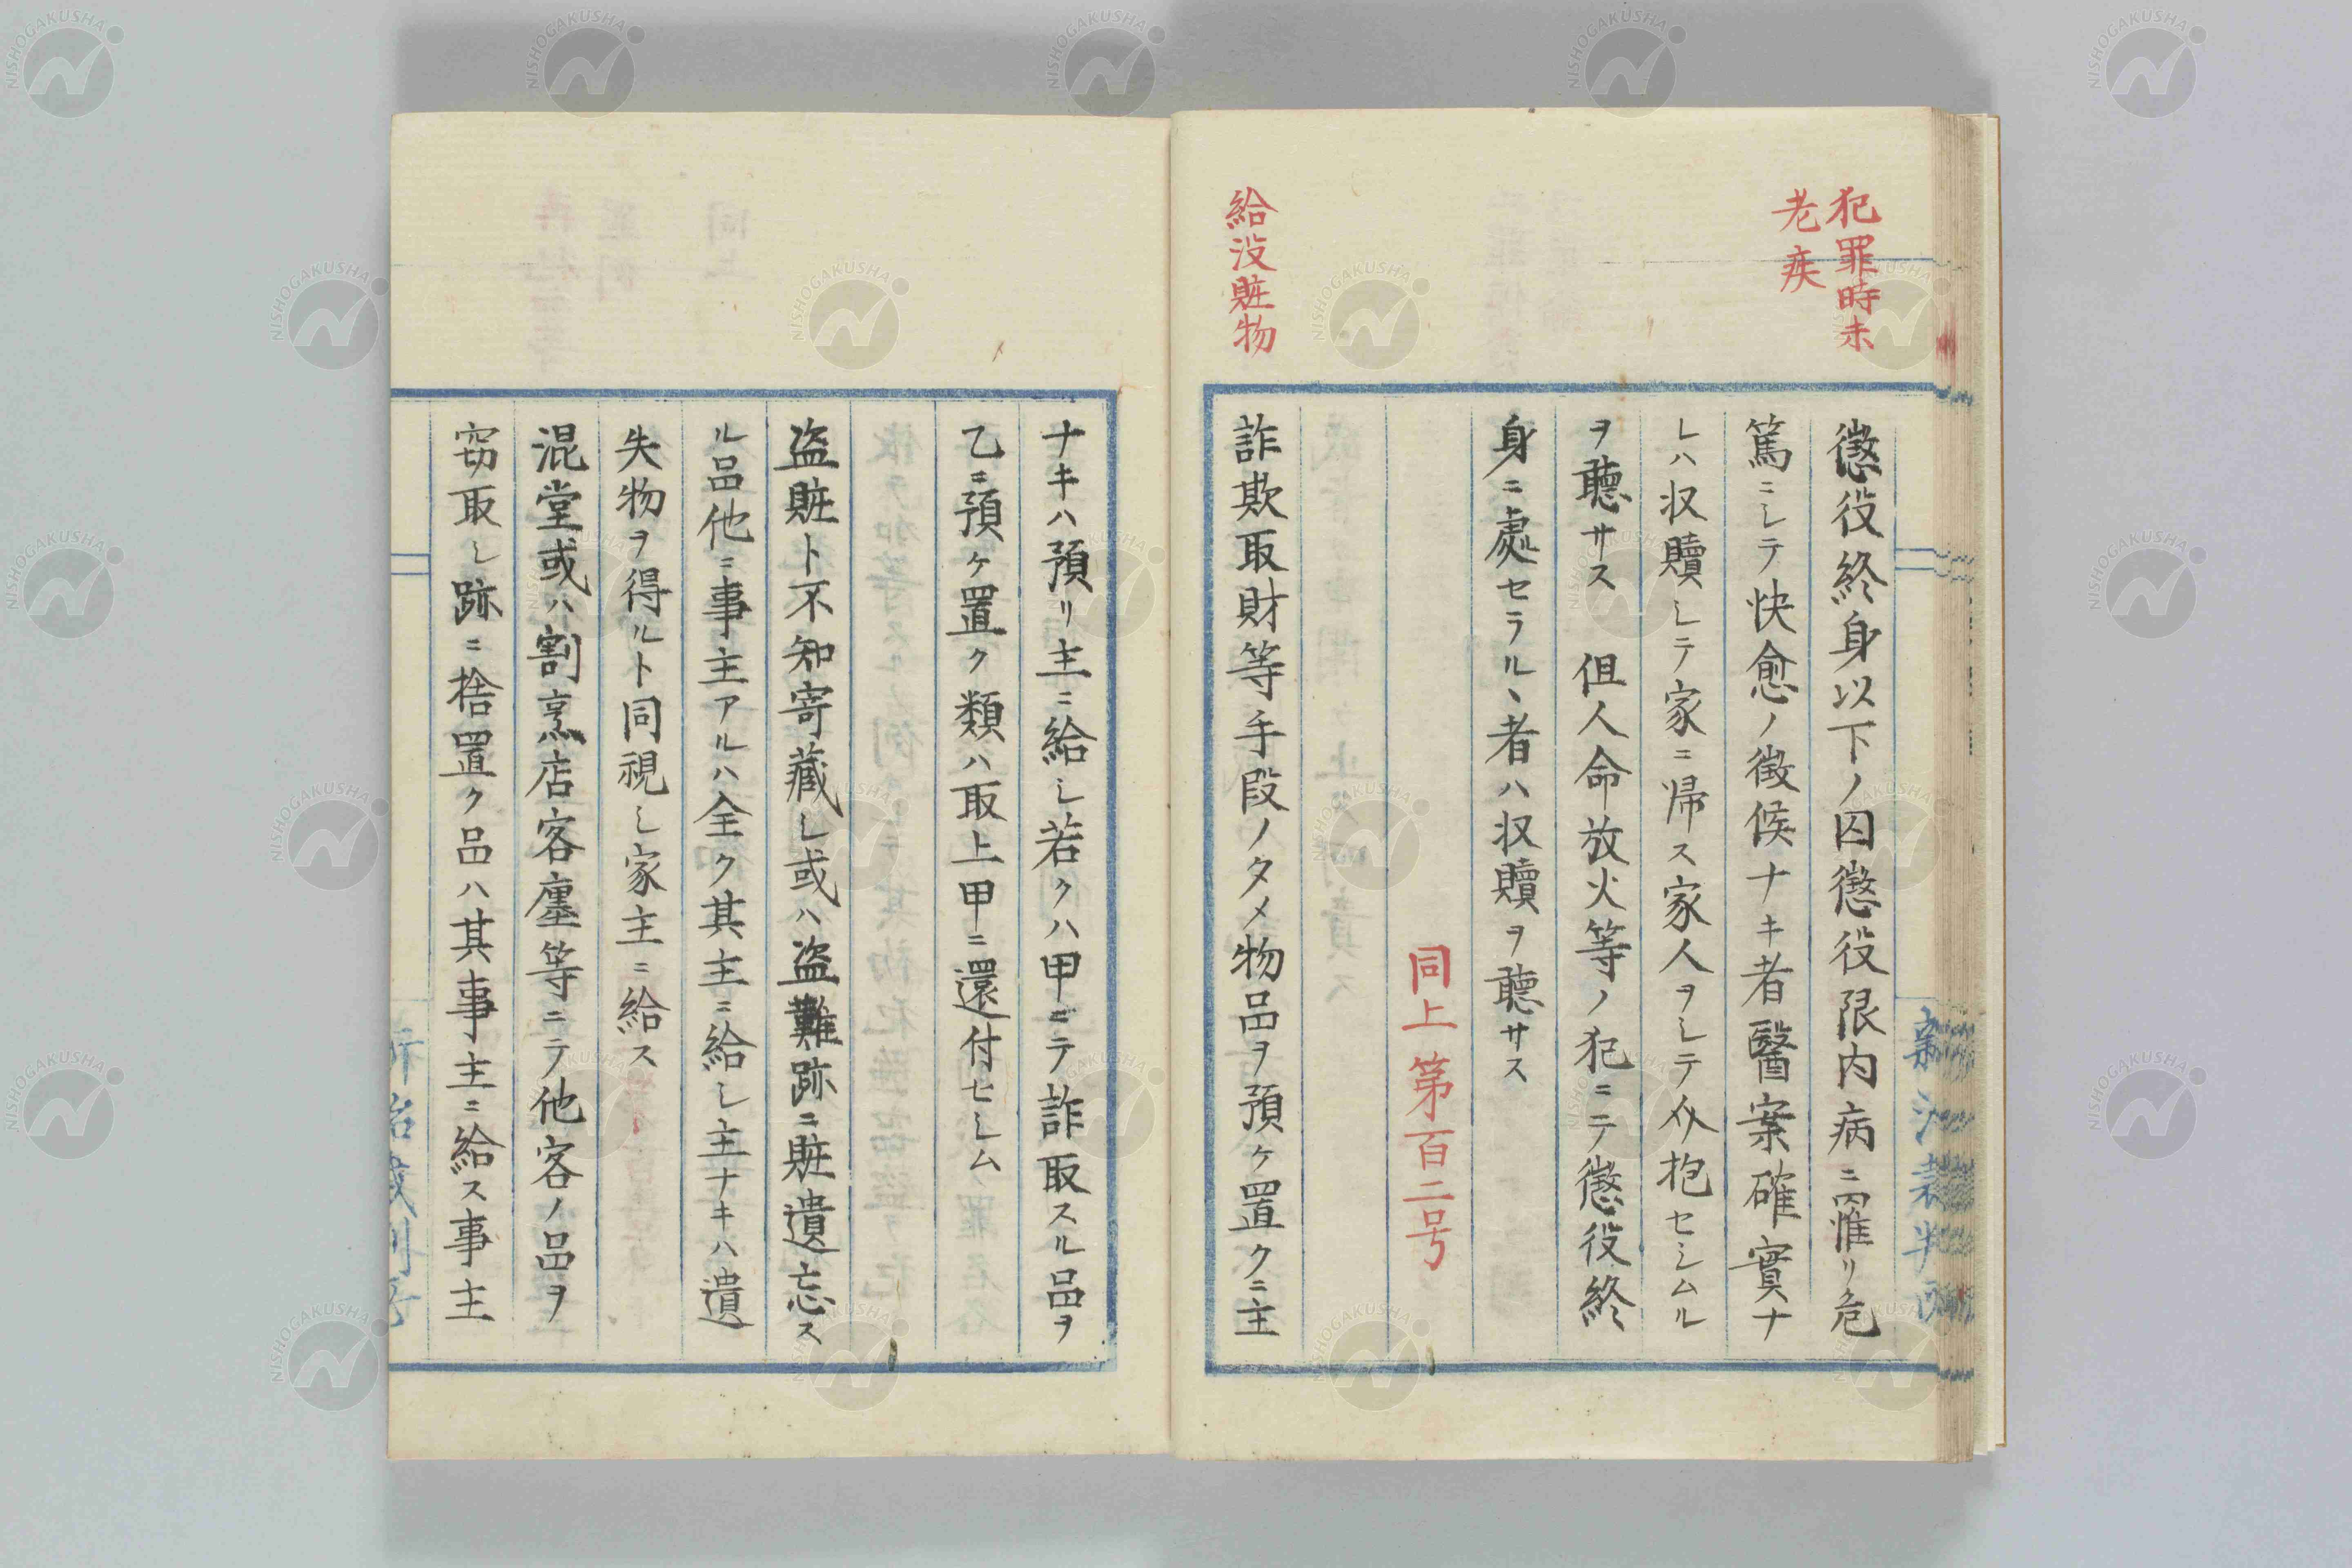 犯罪時未
老疾
懲役終身以下ノ囚懲役限内病ニ罹リ危
篤ニシテ快愈ノ徴候ナキ者醫案確實ナ
レハ収贖シテ家ニ帰ス家人ヲシテ介抱セシムル
ヲ聴サス 但人命放火等ノ犯ニテ懲役終
身ニ處セラルヽ者ハ収贖ヲ聴サス
同上第百二号
給没賍物
詐欺取財等手段ノタメ物品ヲ預ケ置クニ主
ナキハ預リ主ニ給シ若クハ甲ニテ詐取スル品ヲ
乙ニ預ケ置ク類ハ取上甲ニ還付セシム
盗賍ト不知寄蔵シ或ハ盗難跡ニ賍遺忘ス
ル品他ニ事主アルハ全ク其主ニ給シ主ナキハ遺
失物ヲ得ルト同視シ家主ニ給ス
混堂或ハ割烹店客廛等ニテ他客ノ品ヲ
窃取シ跡ニ捨置ク品ハ其事主ニ給ス事主
NISHOGAKUSHA